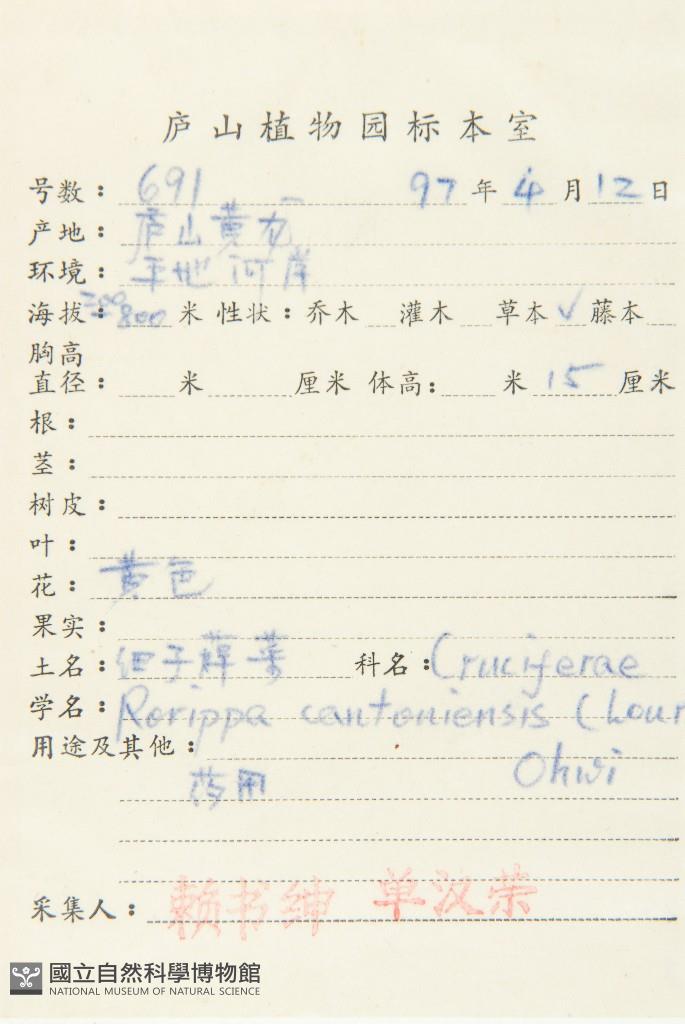 庐山植物园标本室
号数：691 97年4月12日
产地：庐山黄龙
环境：平地河岸
海拔：200-800米 性状：乔木 灌木 草本✓ 藤本
胸高
直径： 米 厘米 体高： 米 15 厘米
根：
茎：
树皮：
叶：
花：黄色
果实：
土名：细子蔊菜 科名：Cruciferae
学名：Rorippa cantoniensis (Lour
用途及其他： Ohwi
药用
采集人：赖书绅 单汉荣
國立自然科學博物館
NATIONAL MUSEUM OF NATURAL SCIENCE